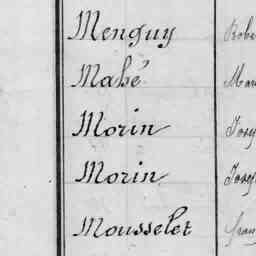 Menguy
Mahé
Morin
Morin
Mousselet